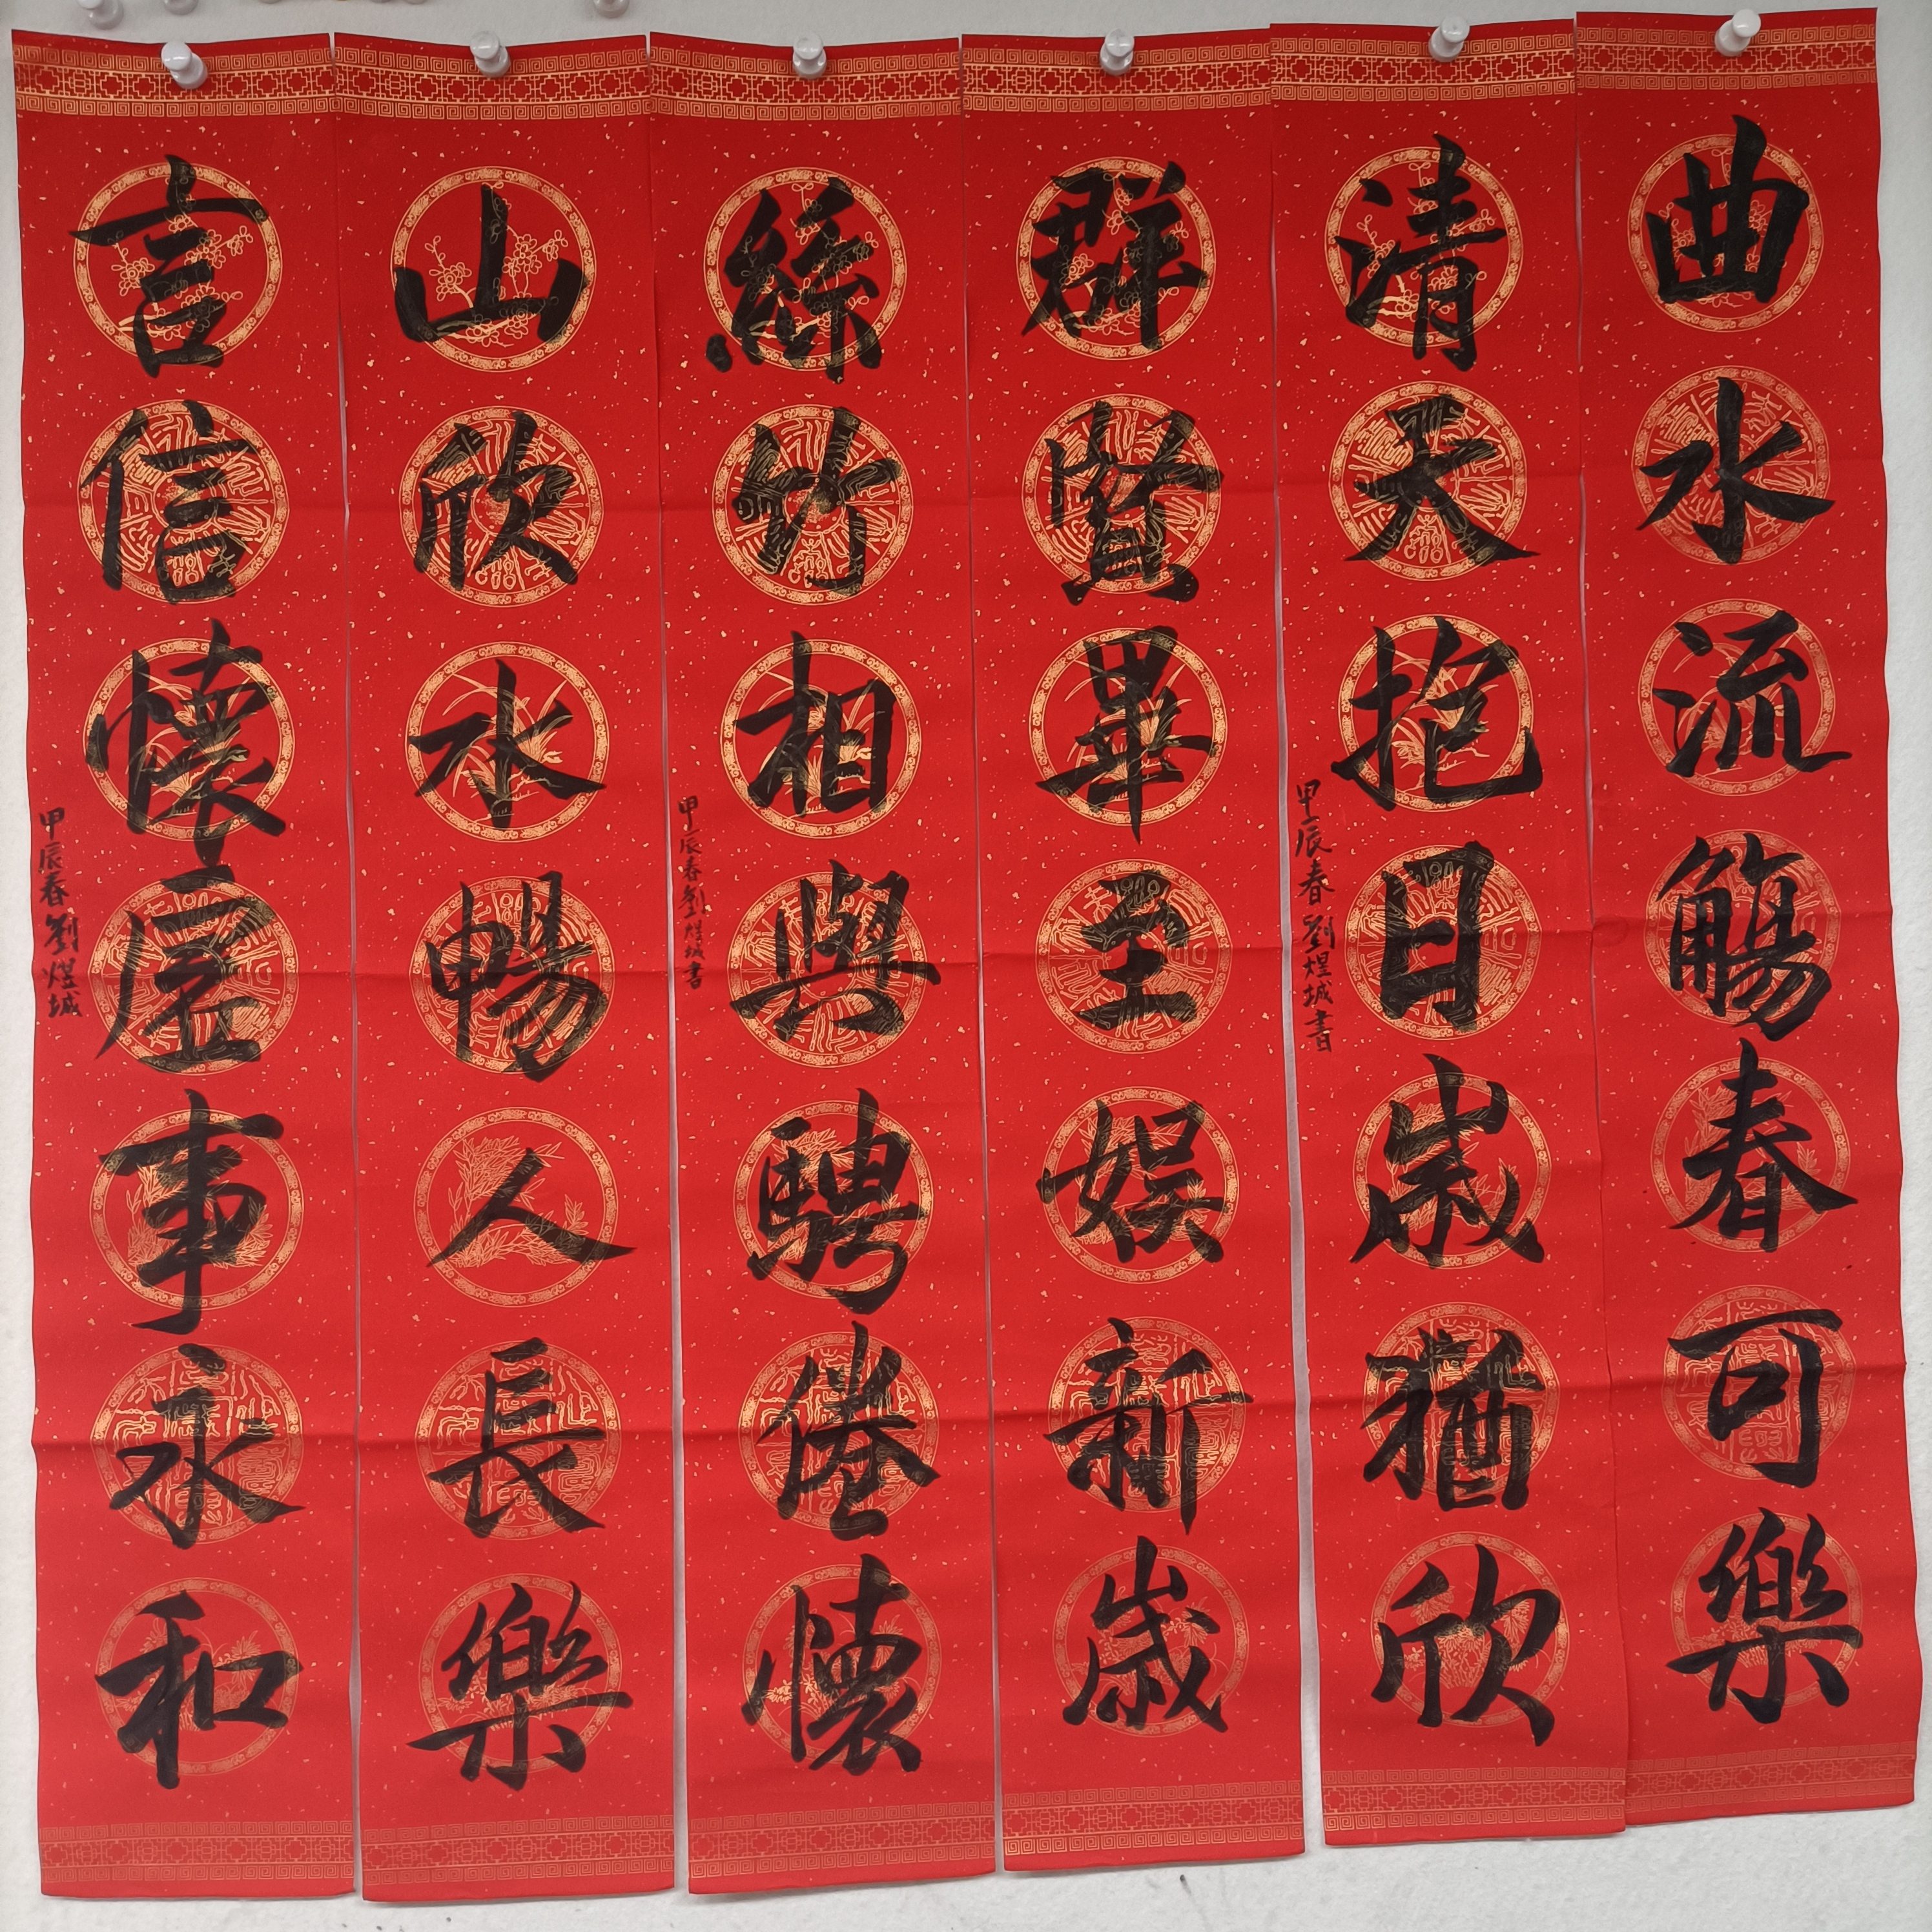 曲水流觴春可樂
清天抱日歲猶欣
甲辰春劉煌城書
群賢畢至娛新歲
絲竹相與騁倦懷
甲辰春劉煌城書
山欣水暢人長樂
言信懷虛事永和
甲辰春劉煌城